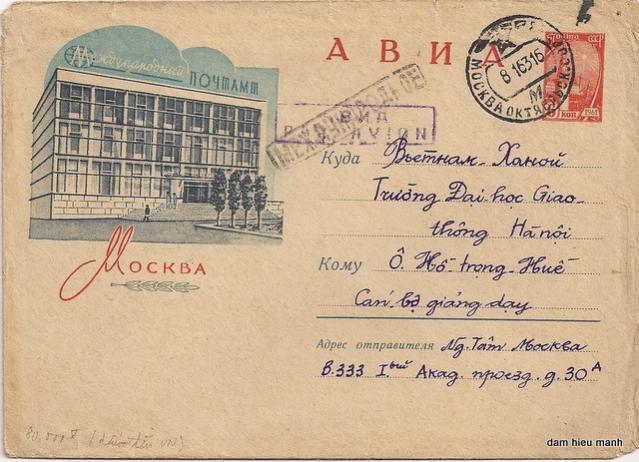 Международный
ПОЧТАМТ
Москва
АВИА
ПОЧТА СССР
1961
КОП
МОСКВА ОКТЯБРЬСК
8 1 63 16
МЕЖДУНАРОДНОЕ
АВИА
PAR AVION
Куда Вьетнам - Ханой
Trường Đại học Giao-
thông Hà nội
Кому Ô. Hồ trọng Huế
Cán bộ giảng dạy
Адрес отправителя Ng. Tâm Москва
В.333 Iый Акад. проезд. д. 30А
80.000đ
dam hieu manh